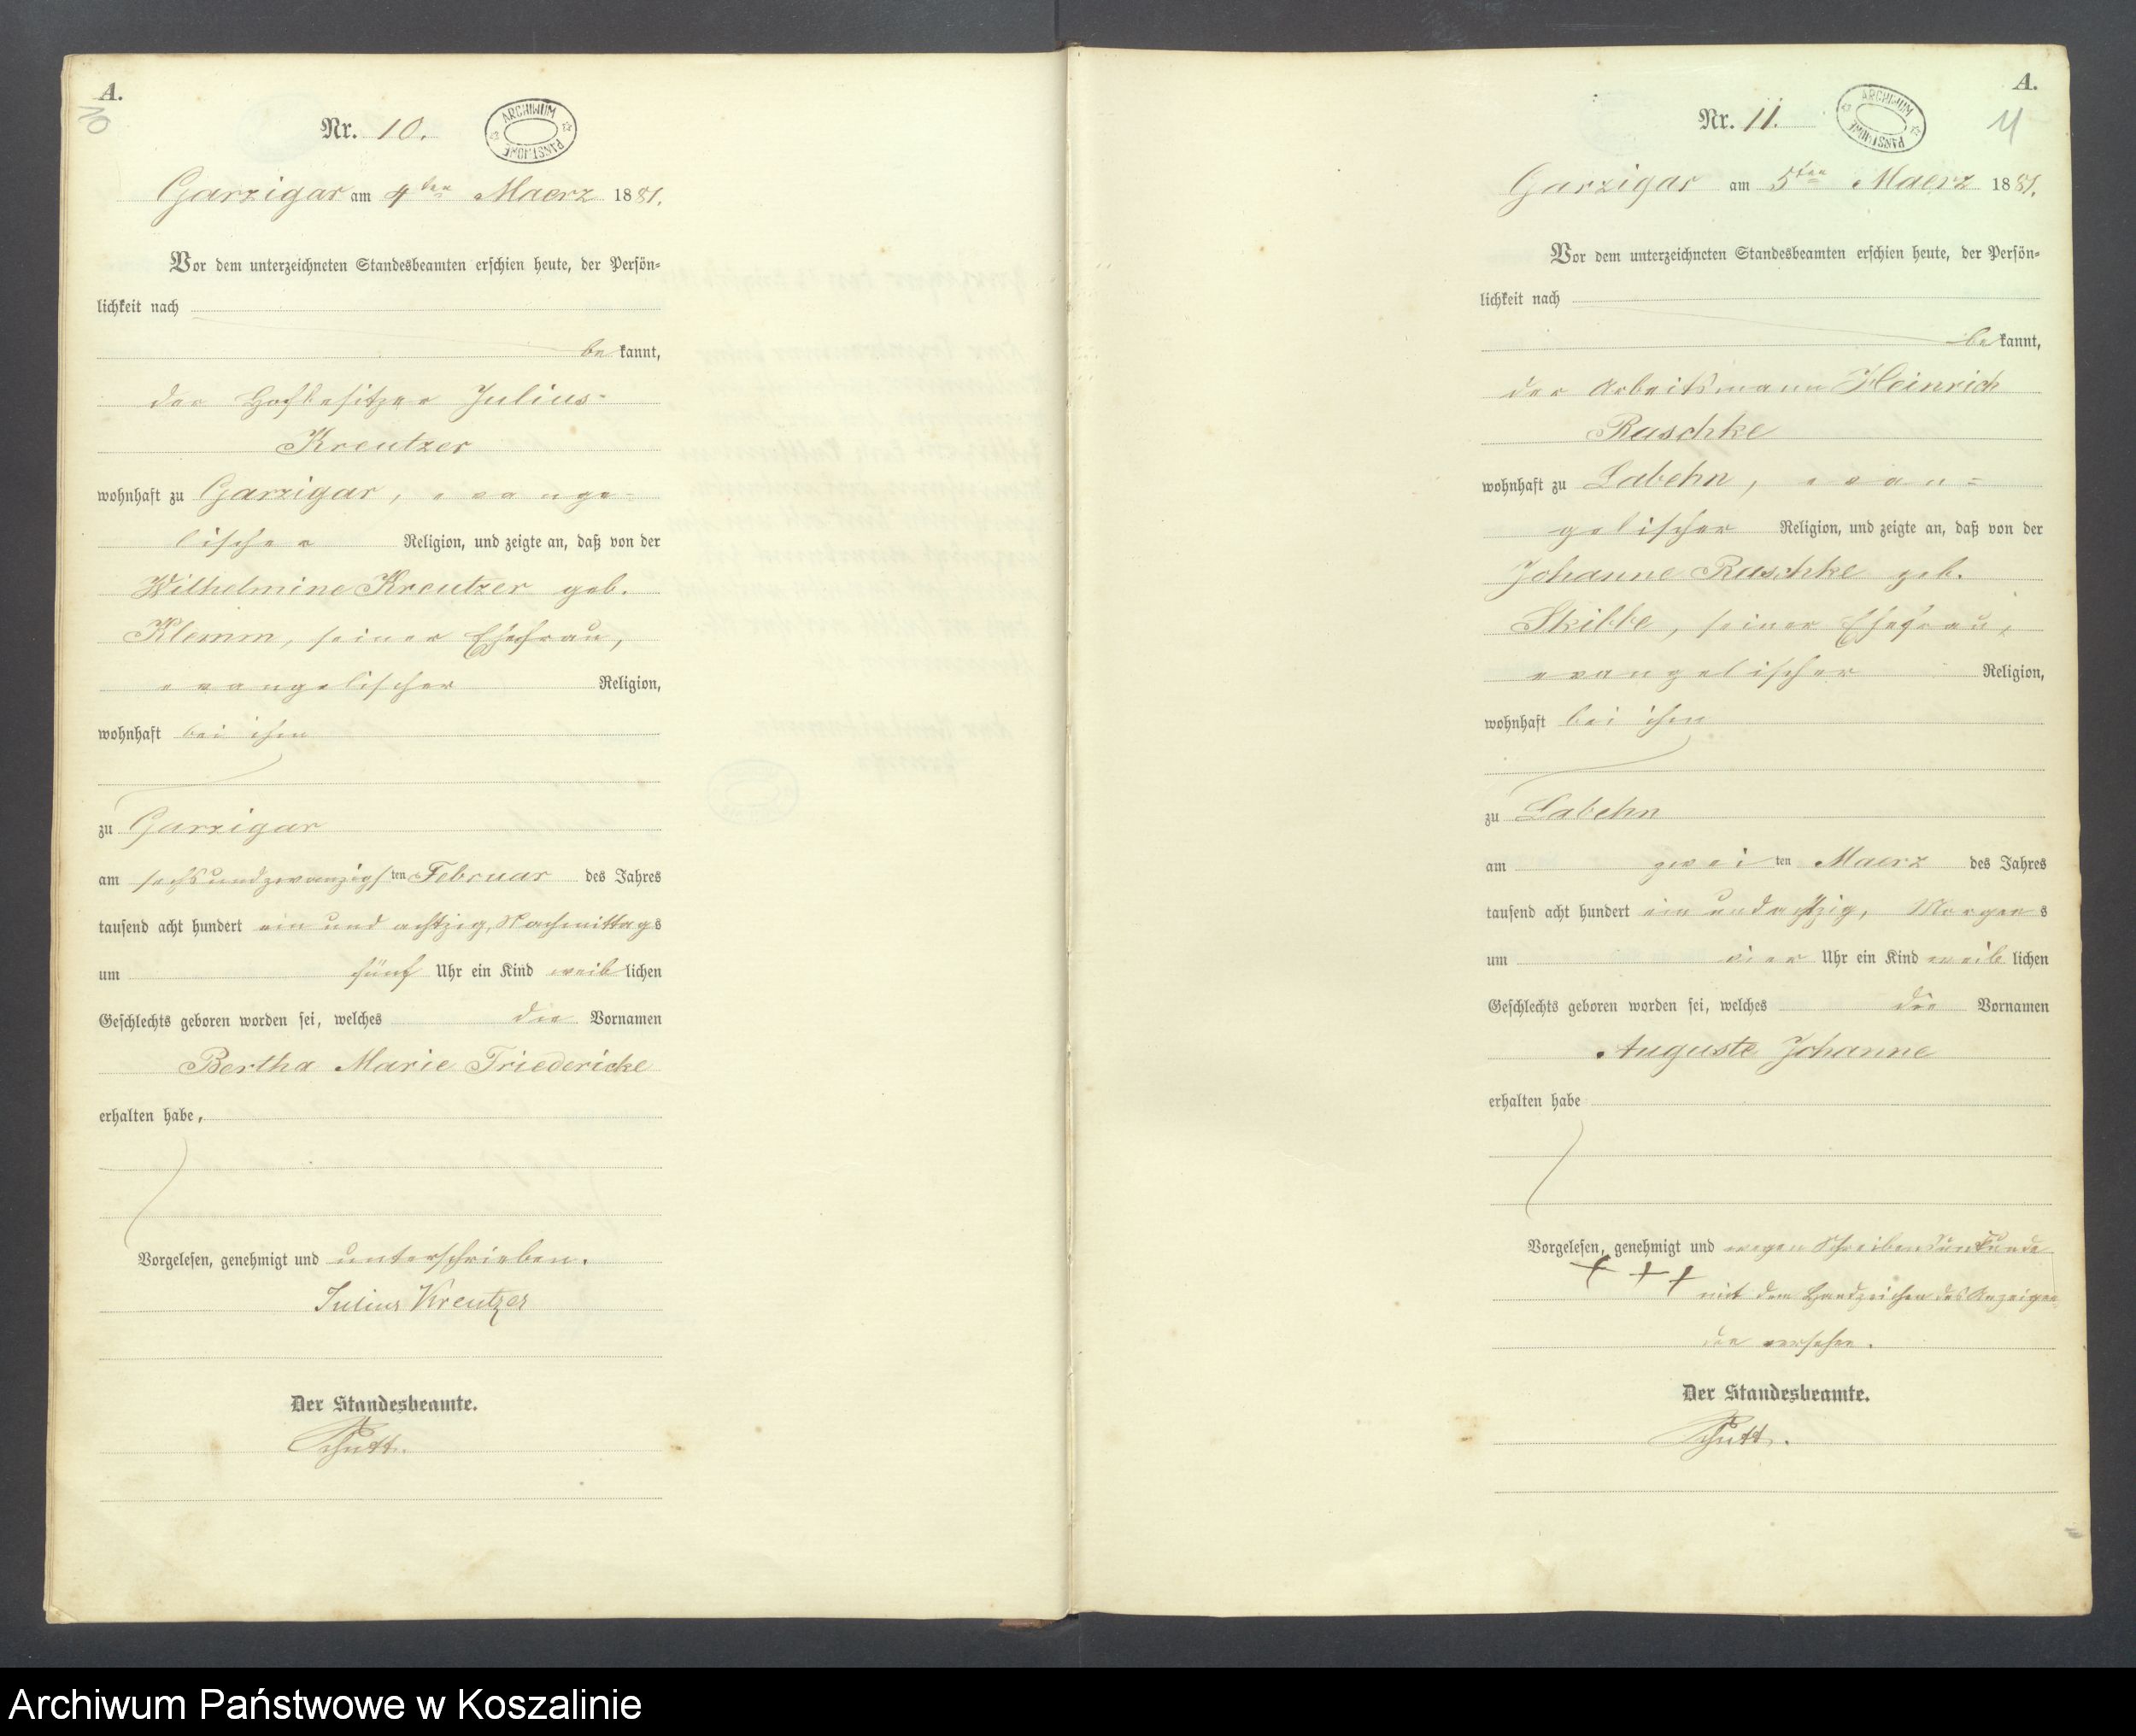 A.
10
Nr. 10.
ARCHIWUM PAŃSTWOWE
Garzigar am 4ten Maerz 1881.
Vor dem unterzeichneten Standesbeamten erschien heute, der Persön-
lichkeit nach
be kannt,
der Hofbesitzer Julius
Kreutzer
wohnhaft zu Garzigar, evange-
lischer Religion, und zeigte an, daß von der
Wilhelmine Kreutzer geb.
Klemm, seiner Ehefrau,
evangelischer Religion,
wohnhaft bei ihm
zu Garzigar
am sechsundzwanzigsten Februar des Jahres
tausend acht hundert ein und achtzig, Nachmittags
um fünf Uhr ein Kind weiblichen
Geschlechts geboren worden sei, welches die Vornamen
Bertha Marie Friedericke
erhalten habe,
Vorgelesen, genehmigt und unterschrieben.
Julius Kreutzer
Der Standesbeamte.
A.
11
Nr. 11.
ARCHIWUM PAŃSTWOWE
Garzigar am 5ten Maerz 1881.
Vor dem unterzeichneten Standesbeamten erschien heute, der Persön-
lichkeit nach
be kannt,
der Arbeitsmann Heinrich
Raschke
wohnhaft zu Labehn, evan-
gelischer Religion, und zeigte an, daß von der
Johanne Raschke geb.
Skibbe, seiner Ehefrau,
evangelischer Religion,
wohnhaft bei ihm
zu Labehn
am zweiten Maerz des Jahres
tausend acht hundert ein und achtzig, Morgens
um vier Uhr ein Kind weiblichen
Geschlechts geboren worden sei, welches die Vornamen
Auguste Johanne
erhalten habe
Vorgelesen, genehmigt und wegen Schreibensunkunde
+ + + mit dem Handzeichen des Anzeigen-
den versehen.
Der Standesbeamte.
Archiwum Państwowe w Koszalinie